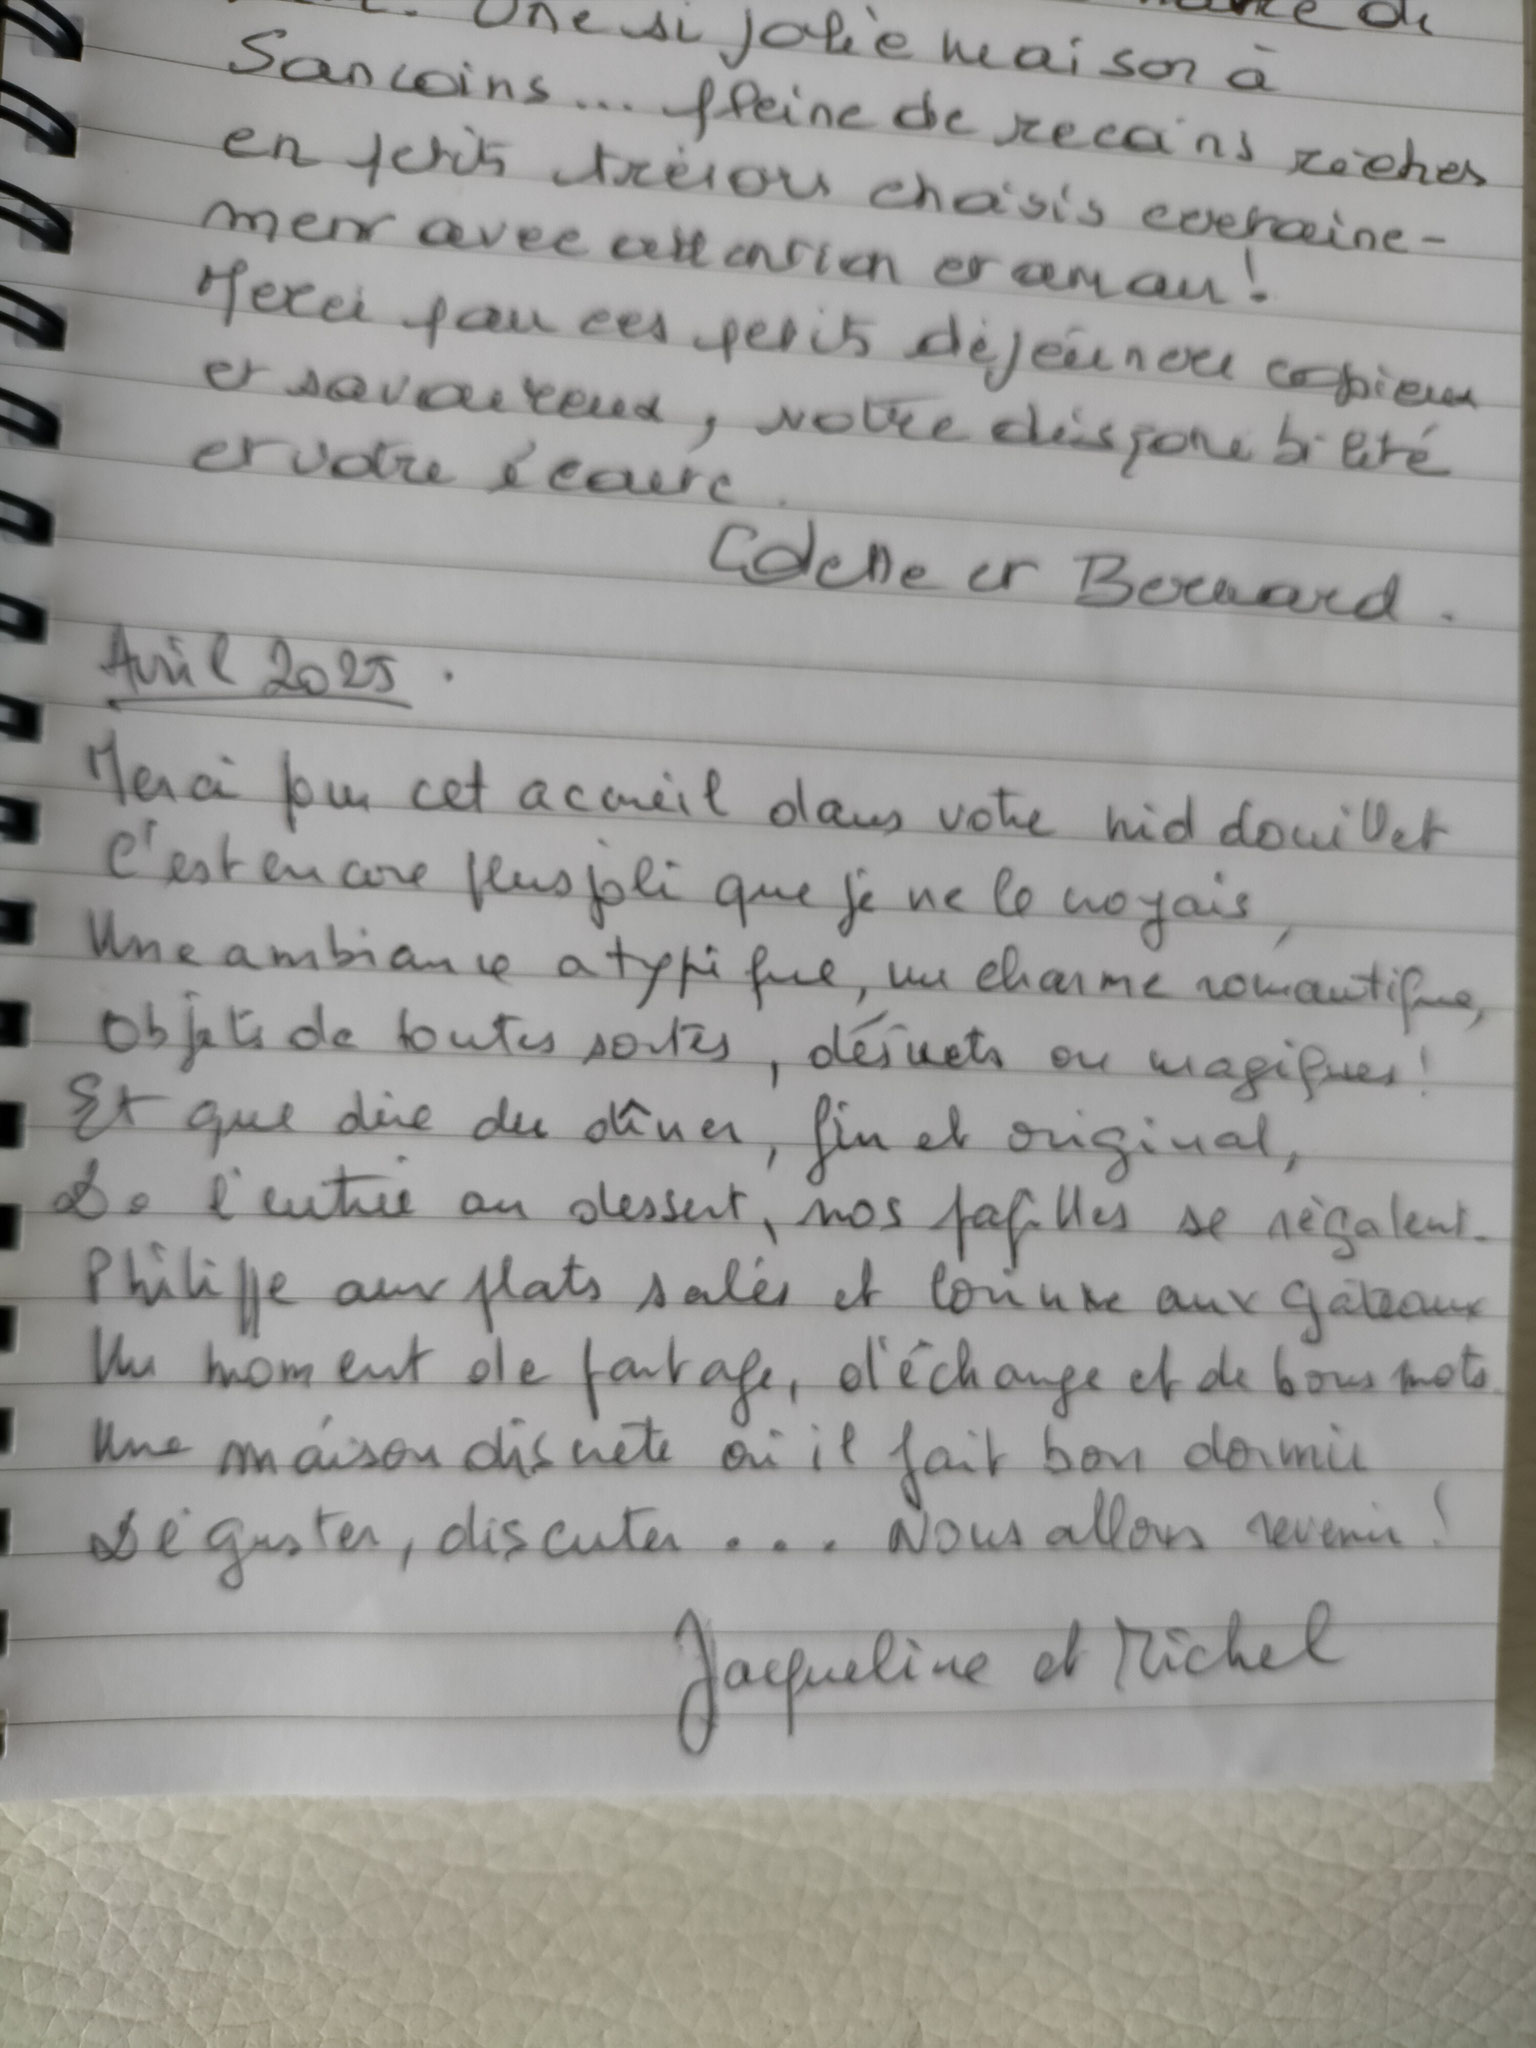 Une si jolie maison à
Sancoins... pleine de recoins riches
en petits trésors choisis certaine-
ment avec attention et amour !
Merci pour ces petits déjeuners copieux
et savoureux, votre disponibilité
et votre écoute.
Colette et Bernard.
Avril 2025.
Merci pour cet accueil dans votre nid douillet
C'est encore plus joli que je ne le croyais,
Une ambiance atypique, un charme romantique,
Objets de toutes sortes, désuets ou magiques !
Et que dire du dîner, fin et original,
De l'entrée au dessert, nos papilles se régalent.
Philippe aux plats salés et Corinne aux gâteaux
Un moment de partage, d'échange et de bons mots.
Une maison discrète où il fait bon dormir
Déguster, discuter .... Nous allons revenir !
Jacqueline et Michel